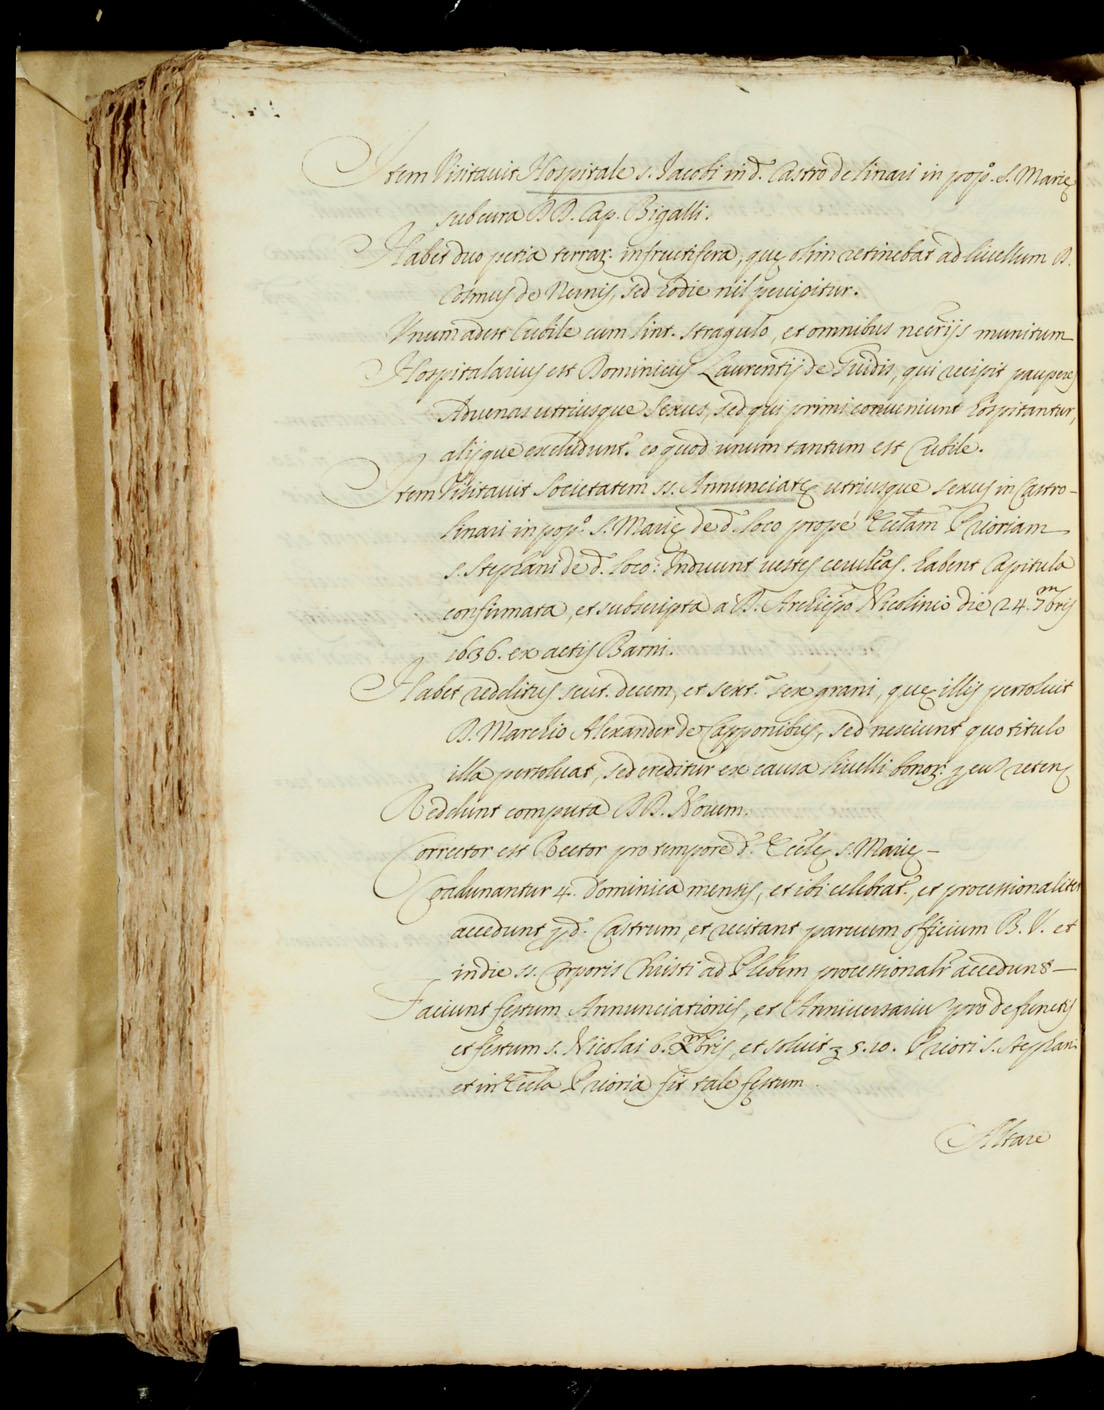 Item Visitavit Hospitale S. Jacobi in d. Castro de linari in popo. S. Marię
sub cura DD. Cap. Bigalli.
Habet duo petia terrar: infructifera, quę olim retinebat ad livellum D.
Cosmus de Nernis, sed hodie nil percipitur.
Unum adest Cubile cum lint. stragulo, et omnibus necrijs munitum
Hospitalarius est Dominicus Laurentij de Guidis, qui recipit pauperes
Advenas utriusque sexus, sed qui primi conveniunt hospitantur,
alijque excludunt. eo quod unum tantum est Cubile.
Item Visitavit Societatem SS. Annunciatę utriusque sexus in Castro
linari in popo. S. Marię de d. loco prope Ecclam Prioriam
S. Stephani de d. loco: Induunt vestes ceruleas. habent Capitula
confirmata, et subscripta a D. Archiepo Nicolinio die 24. 7mbris
1636. ex actis Barni.
Habet redditus scut. decem, et sext. sex grani, quę illis persoluit
D. Marchio Alexander de Capponibus, sed nesciunt quo titulo
illa persolvat, sed creditur ex causa livelli bonor. p eu retent
Reddunt computa DD. Novem.
Corrector est Rector pro tempore d. Ecclę S. Marię
Coadunantur 4. Dominica mensis, et ibi celebrat., et processionaliter
accedunt p d. Castrum, et recitant parvum officium B. V. et
in die SS. Corporis Christi ad Plebem processionalr accedunt
Faciunt festum Annunciationis, et Anniversariu pro defunctis
et festum S. Nicolai 6. Xmbris, et solvit 3 5. 10. Priori S. Stephani
et in Eccla Prioria fit tale festum.
Altare